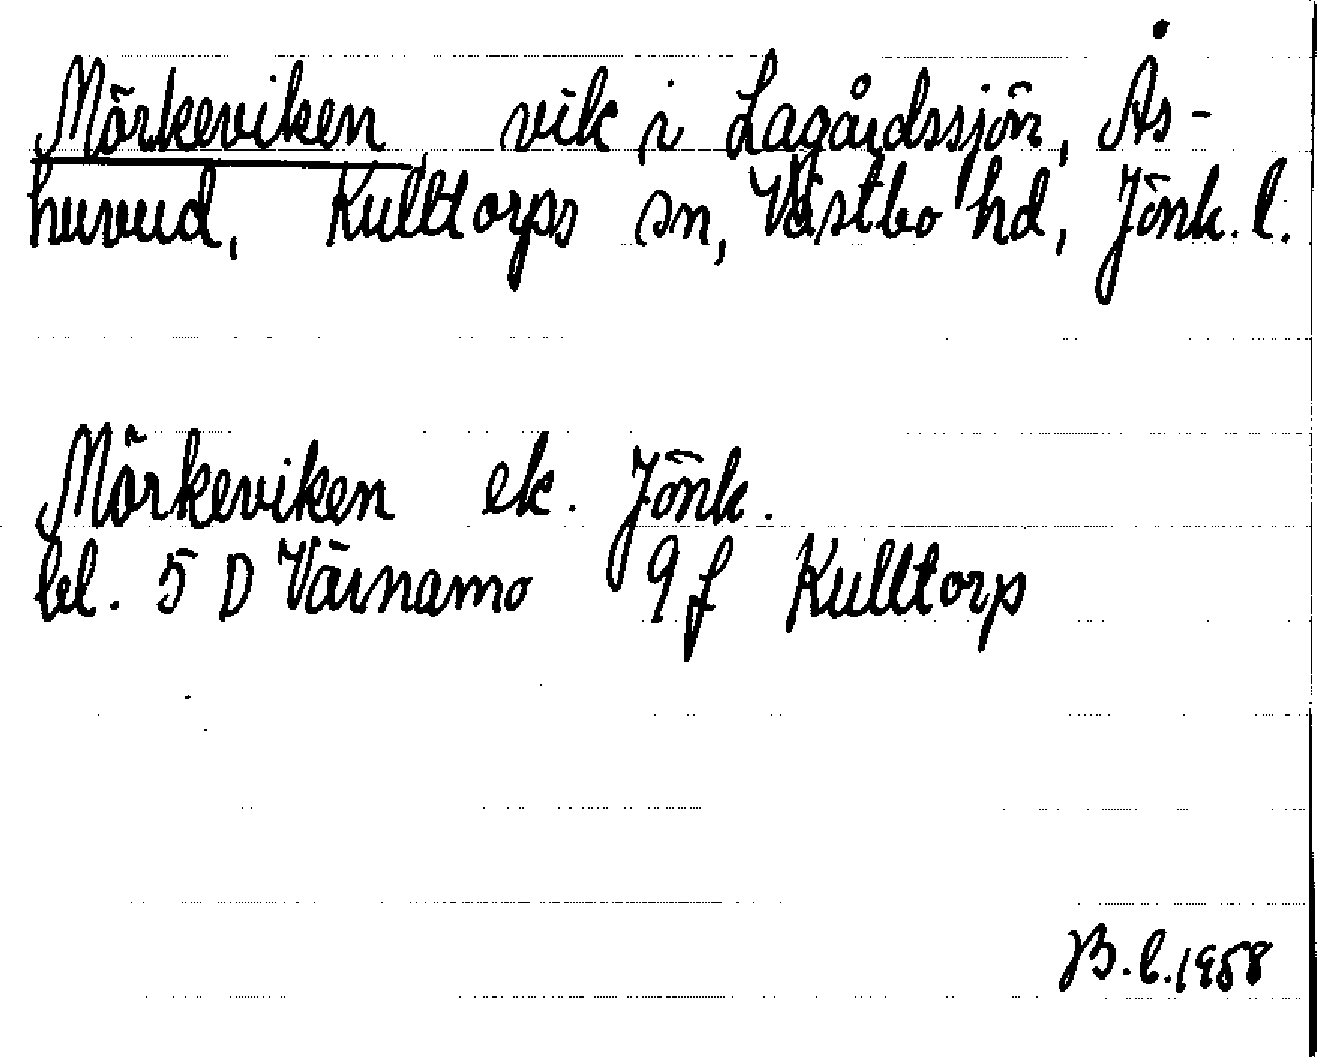 Mörkeviken vik i Lagårdssjön, Ås-
huvud, Kulltorps sn, Västbo hd, Jönk. l.
Mörkeviken ek. Jönk.
bl. 5 D Värnamo 9 f Kulltorp
B.C. 1958